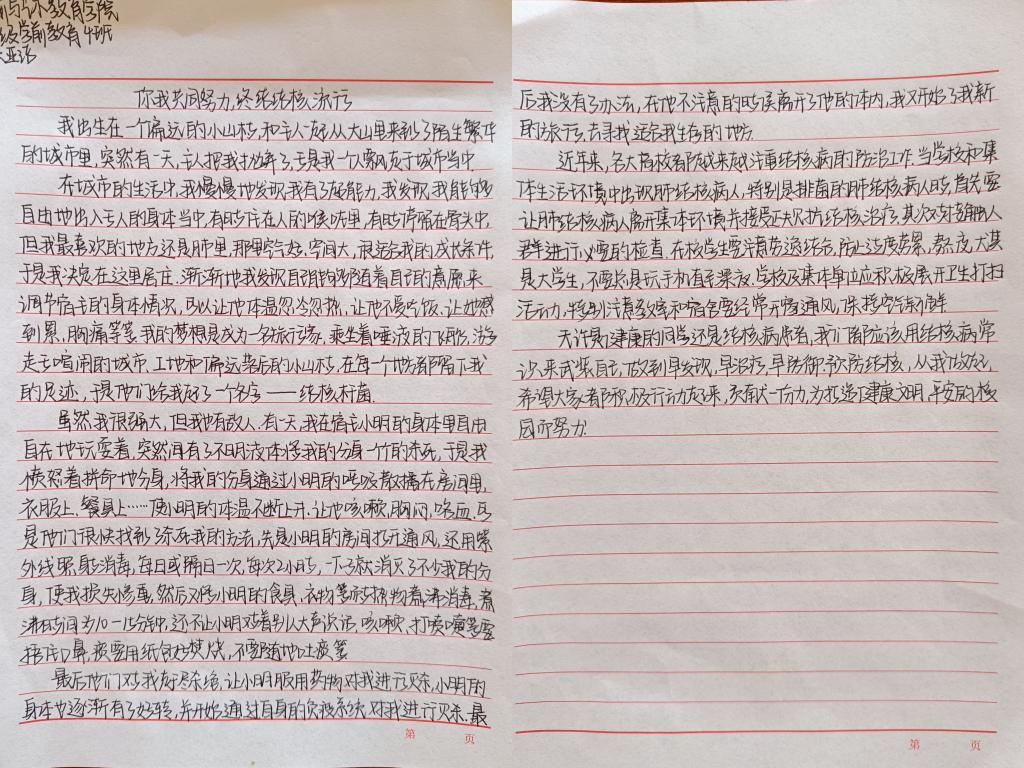 教育学院
级学前教育4班
你我共同努力,终结结核流行
我出生在一个偏远的小山村,和主人一起从大山里来到了陌生繁华
的城市里,突然有一天,主人把我抛弃了,于是我一个人飘荡于城市当中.
在城市的生活中,我慢慢地发现我有了超能力,我发现我能够
自由地出入主人的身体当中,有时住在人的喉咙里,有时停留在骨头中,
但我最喜欢的地方还是肺里,那里空气好,空间大,很适合我的成长条件,
于是我决定在这里居住.渐渐地我发现自己能够随着自己的意愿来
调节宿主的身体情况,可以让他体温忽冷忽热,让他不爱吃饭,让他感
到累,胸痛等等.我的梦想是成为一名旅行家,乘坐着唾液的飞船,游
走于喧闹的城市、工地和偏远落后的小山村,在每一个地方都留下我
的足迹,于是他们给我取了一个名字——结核杆菌.
虽然我很强大,但我也有敌人.有一天,我在宿主小明的身体里自由
自在地玩耍着,突然间有了不明液体将我的分身一个个的杀死,于是我
愤怒着拼命地分身,将我的分身通过小明的呼吸散播在房间里,
衣服上、餐具上……使小明的体温不断上升,让他咳嗽,胸闷,咯血.可
是他们很快找到了杀死我的方法,先是小明的房间打开通风,还用紫
外线照射消毒,每日或隔日一次,每次2小时,一下子就消灭了不少我的分
身,使我损失惨重,然后又将小明的食具、衣物等被褥物煮沸消毒,煮
沸时间为10—15分钟,还不让小明对着别人大声说话,咳嗽、打喷嚏等要
捂住口鼻,痰要用纸包好焚烧,不要随地吐痰等.
最后他们对我赶尽杀绝,让小明服用药物对我进行灭杀,小明的
身体也逐渐有了好转,并开始通过自身的免疫系统对我进行灭杀.最
后我没有了办法,在他不注意的时候离开了他的体内,我又开始了我新
的旅行,去寻找适合我生存的地方.
近年来,各大高校看防越来越注重结核病的防治工作.当学校和集
体生活环境中出现肺结核病人,特别是排菌的肺结核病人时,首先要
让肺结核病人离开集体环境并接受正规抗结核治疗,其次对接触人
群进行必要的检查.在校学生要注意劳逸结合,防止过度劳累、熬夜,尤其
是大学生,不要总是玩手机直至深夜.学校及集体单位应积极展开卫生打扫
活动,特别注意教室和宿舍要经常开窗通风,保持空气新鲜.
无论是健康的同学还是结核病患者,我们都应该用结核病常
识来武装自己,做到早发现,早治疗,早防御.预防结核,从我做起,
希望大家都积极行动起来,贡献一份力,为打造健康文明,平安的校
园而努力.
第 页
第 页